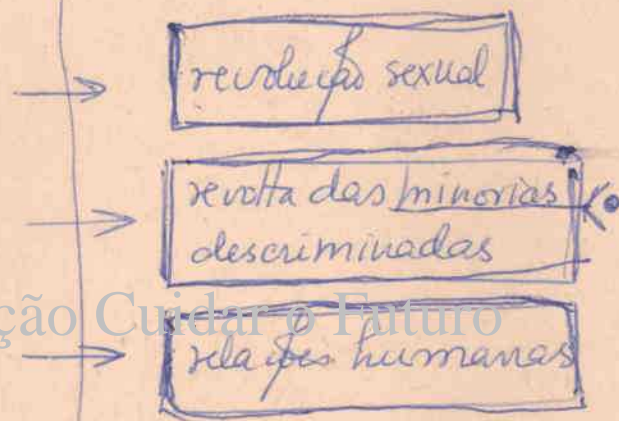 revolução sexual
revolta das minorias
descriminadas
ção Cuidar o Futuro
relações humanas